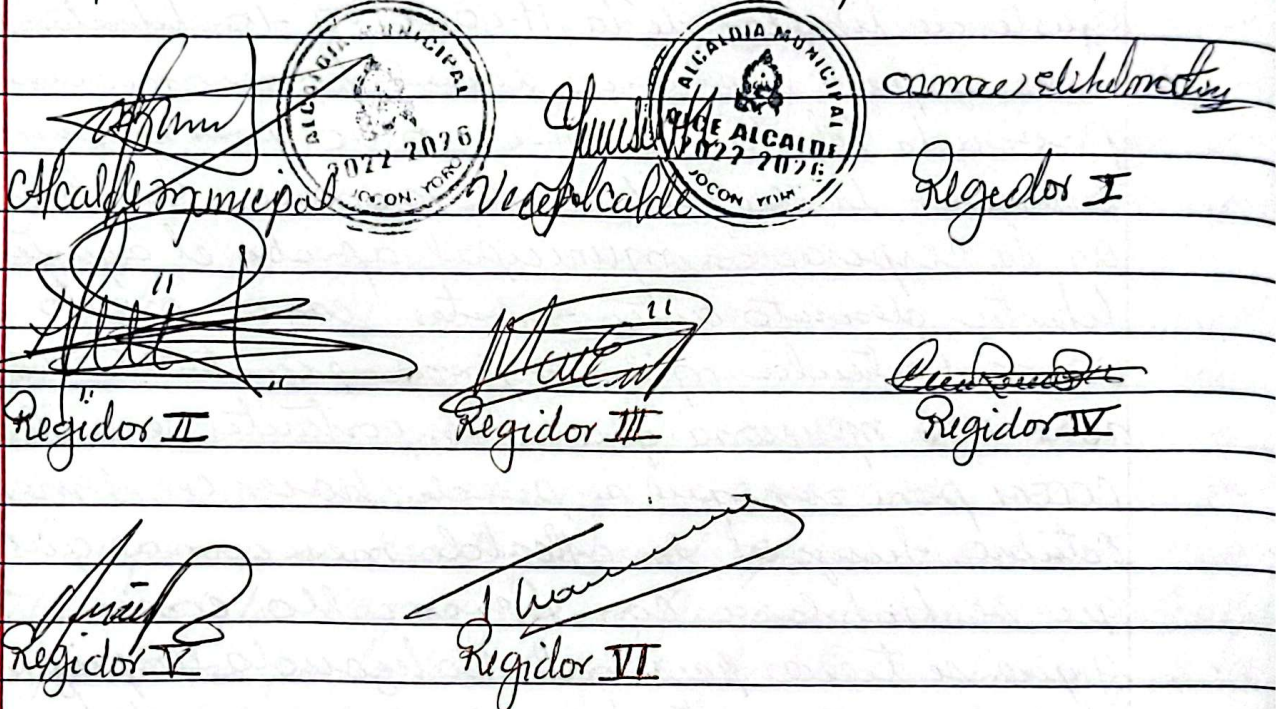 ALCALDIA MUNICIPAL
2022-2026
JOCON, YORO
ALCALDIA MUNICIPAL
VICE ALCALDE
2022-2026
JOCON, YORO
Alcalde municipal
Vice Alcalde
Regidor I
Regidor II
Regidor III
Regidor IV
Regidor V
Regidor VI